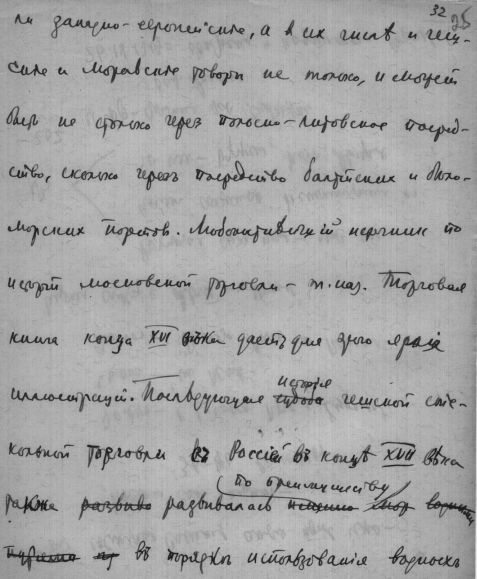 32 25
ли западно-европейские, а в их числе и чеш-
ские и моравские товары не только, и может
быть не столько через польско-литовское посред-
ство, сколько через посредство балтийских и бело-
морских портов. Любопытнейший источник по
истории московской торговли – т. наз. Торговая
книга конца XVI вѣка даетъ для этого яркие
иллюстрации. Последующая судьба исторія чешской сте-
кольной торговли въ Россіей въ концѣ XVII вѣка
также развива развивалась по преимуществу
въ порядкѣ использованія водныхъ